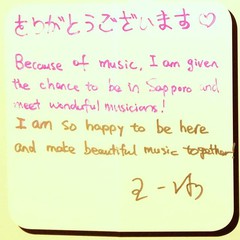 ありがとうございます♡
Because of music, I am given
the chance to be in Sapporo and
meet wonderful musicians!
I am so happy to be here
and make beautiful music together!